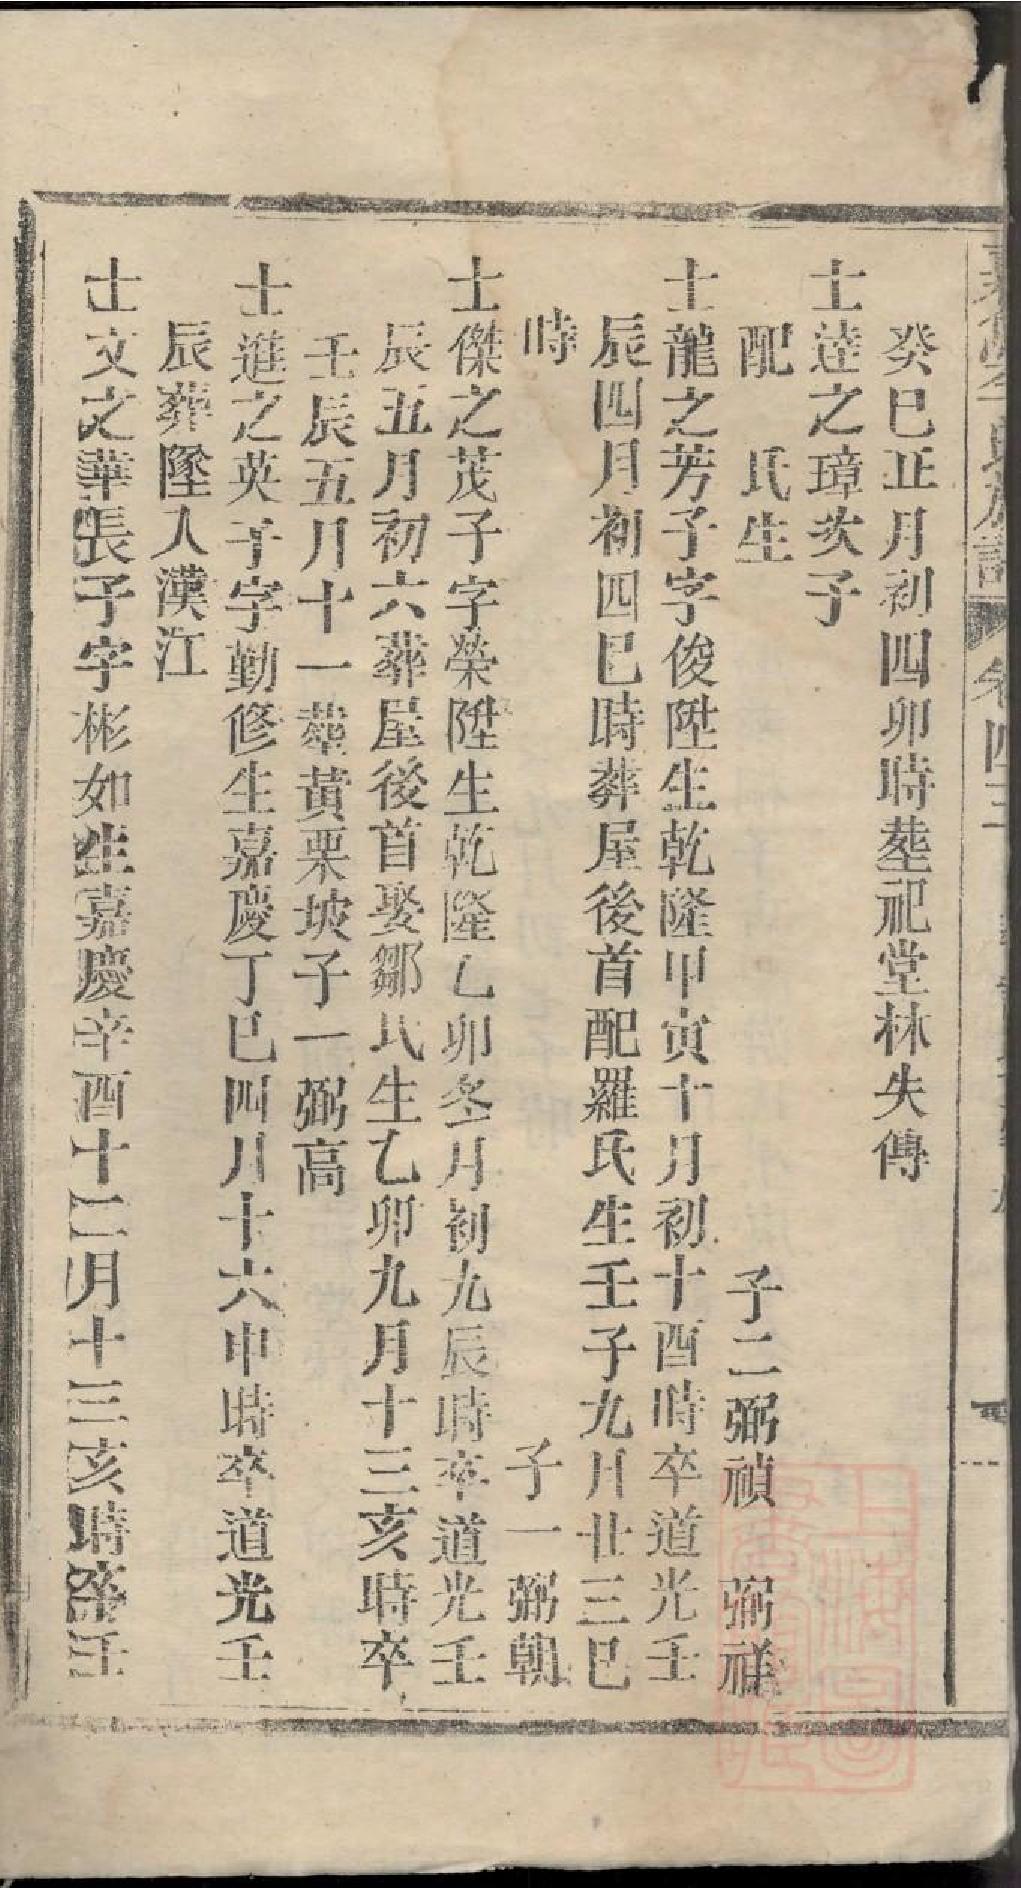 癸巳正月初四卯時塟祀堂林失傳
士逹之璋次子
配　氏生　子二弼禎　弼祥
士龍之芳子字俊陞生乾隆甲寅十月初十酉時卒道光壬
辰四月初四巳時葬屋後首配羅氏生壬子九月廿三巳
時　子一弼朝
士傑之茂子字榮陞生乾隆乙卯冬月初九辰時卒道光壬
辰五月初六葬屋後首娶鄒氏生乙卯九月十三亥時卒
壬辰五月十一塟黃栗坡子一弼高
士進之英子字勤修生嘉慶丁巳四月十六申時卒道光壬
辰葬墜人漢江
士文之華長子字彬如生嘉慶辛酉十二月十三亥時卒壬